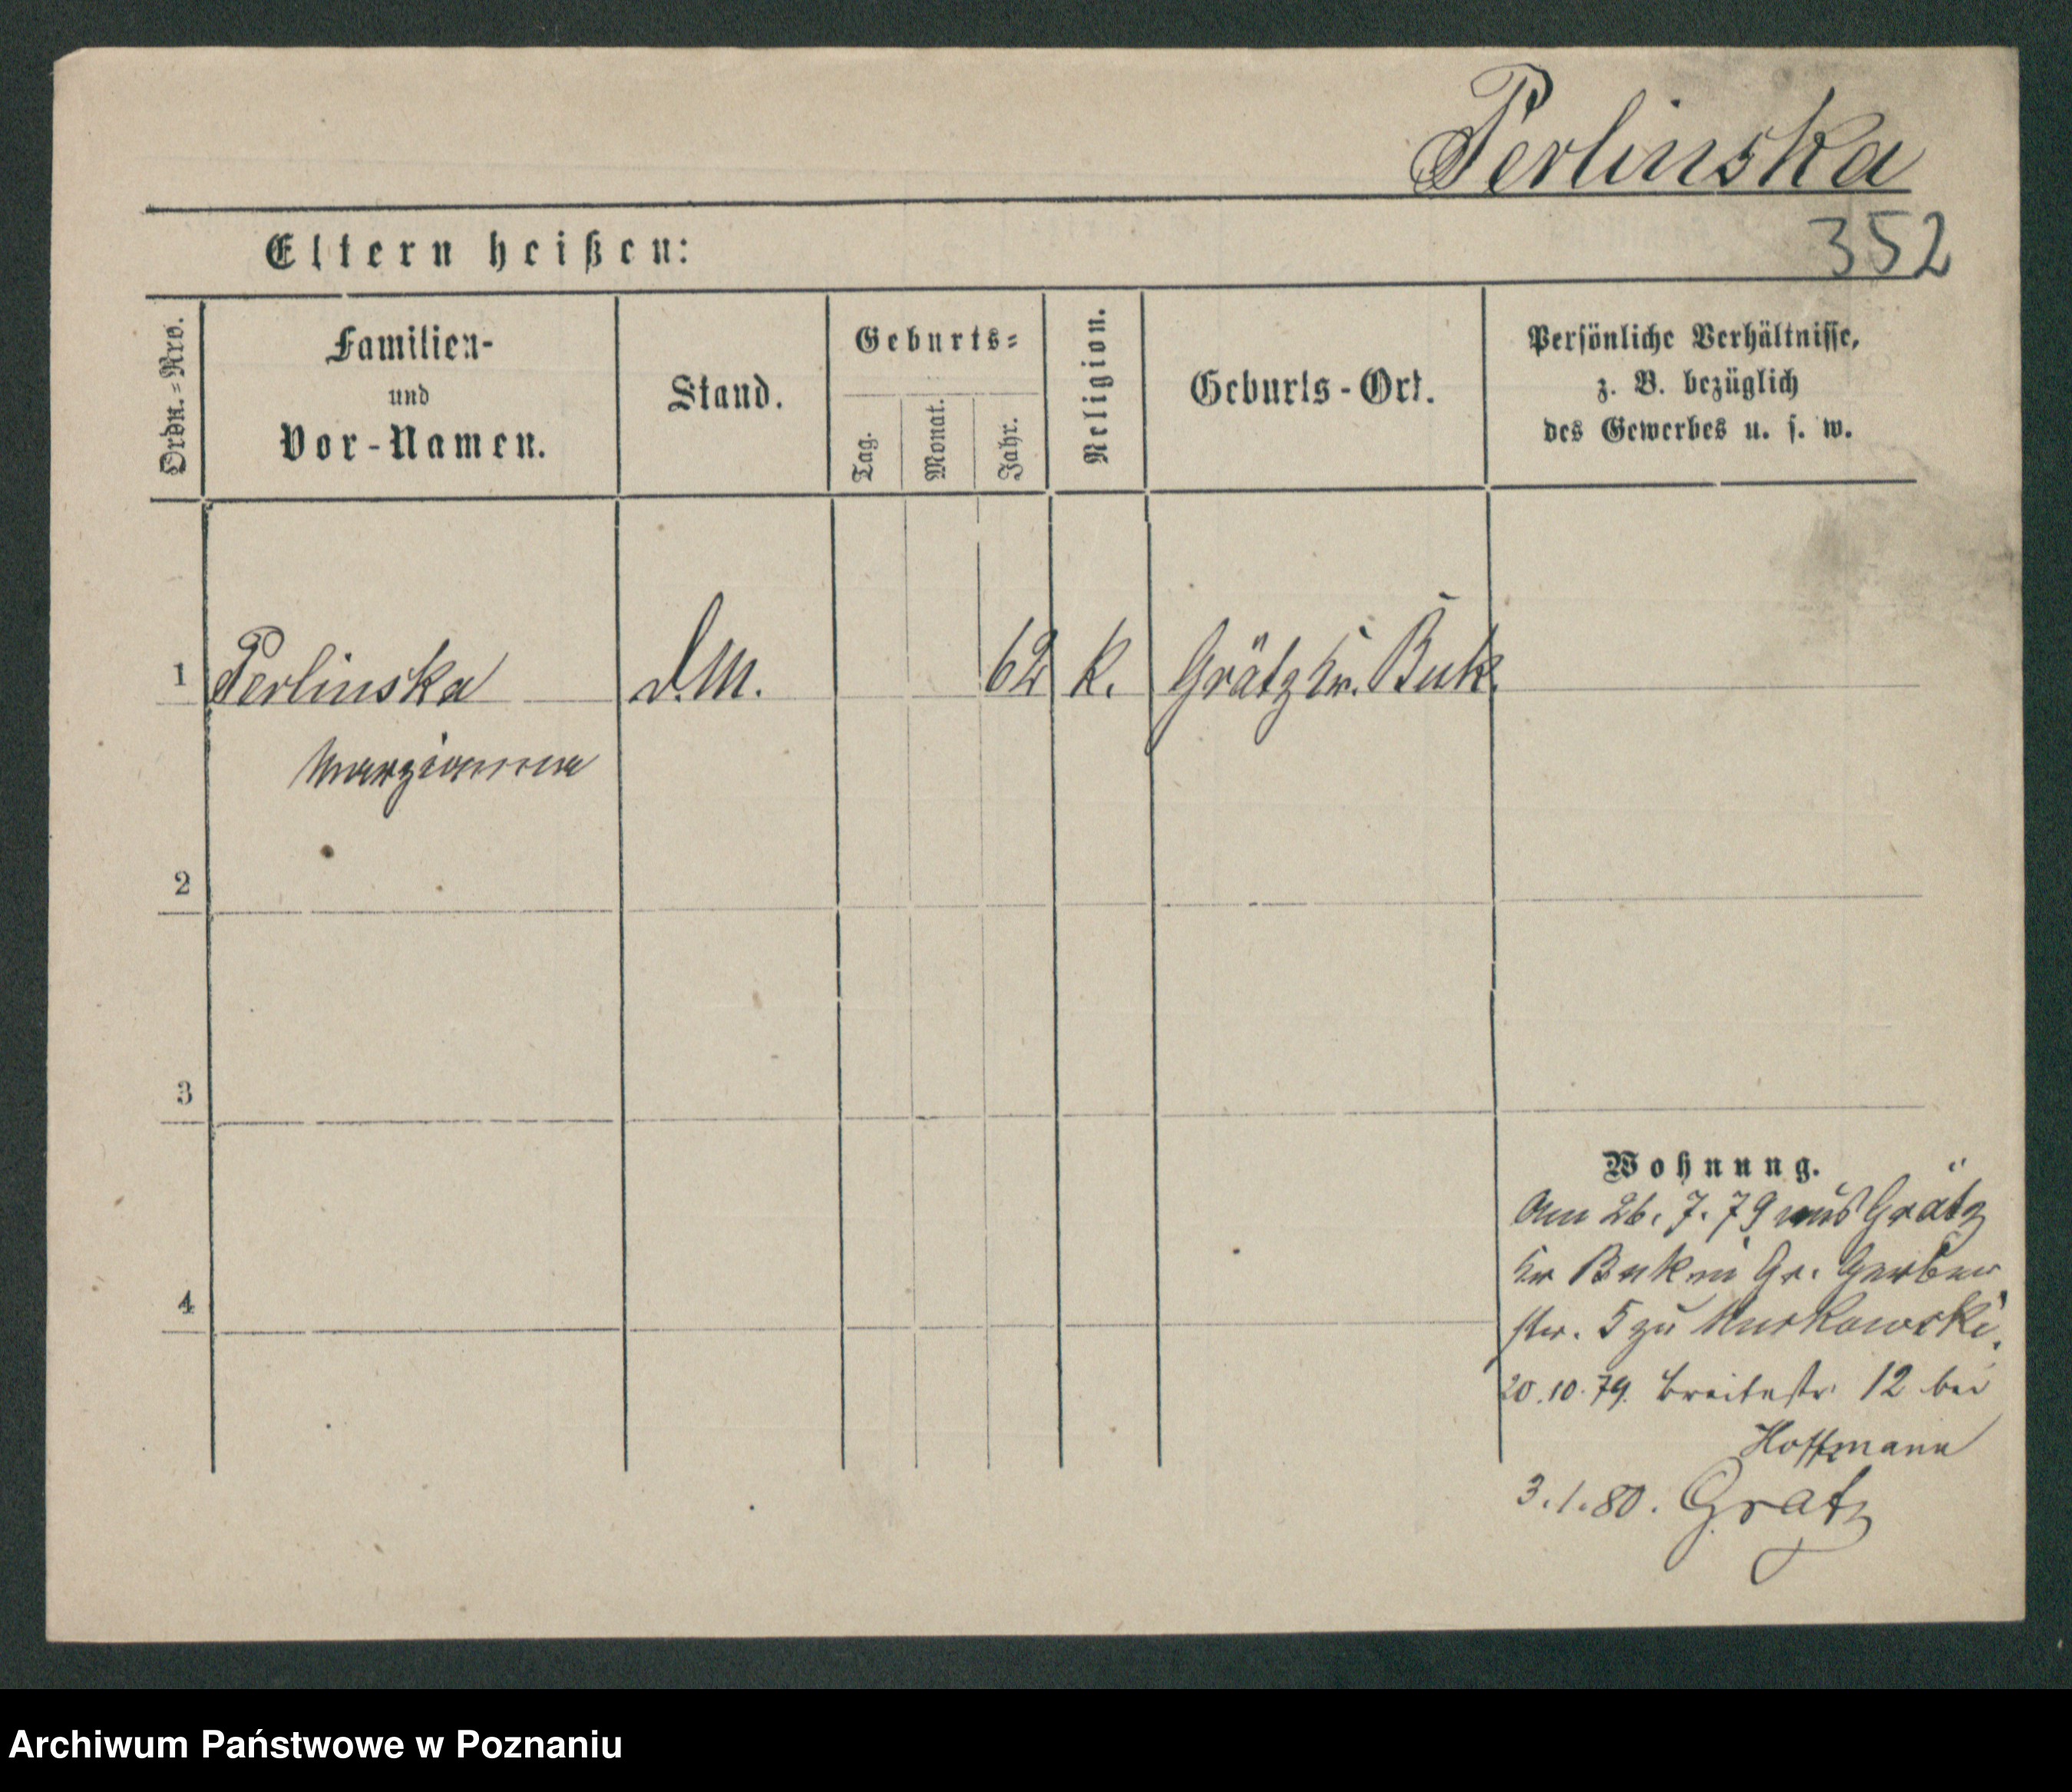 Perlinska
352
Eltern heißen:
Ordn.=Nro.
Familien-
und
Vor-Namen.
Stand.
Geburts=
Tag.
Monat.
Jahr.
Religion.
Geburts-Ort.
Persönliche Verhältnisse,
z. B. bezüglich
des Gewerbes u. s. w.
1 Perlinska D.M. 62 K. Grätz Kr. Buk.
Maryianna
2
3
Wohnung.
Am 26. 7. 79 aus Grätz
Kr Buk in Gr. Gerber
4
str. 5 zu Murkowski.
20.10.79. Breitestr. 12 bei
Hoffmann
3.1.80. Gratz
Archiwum Państwowe w Poznaniu